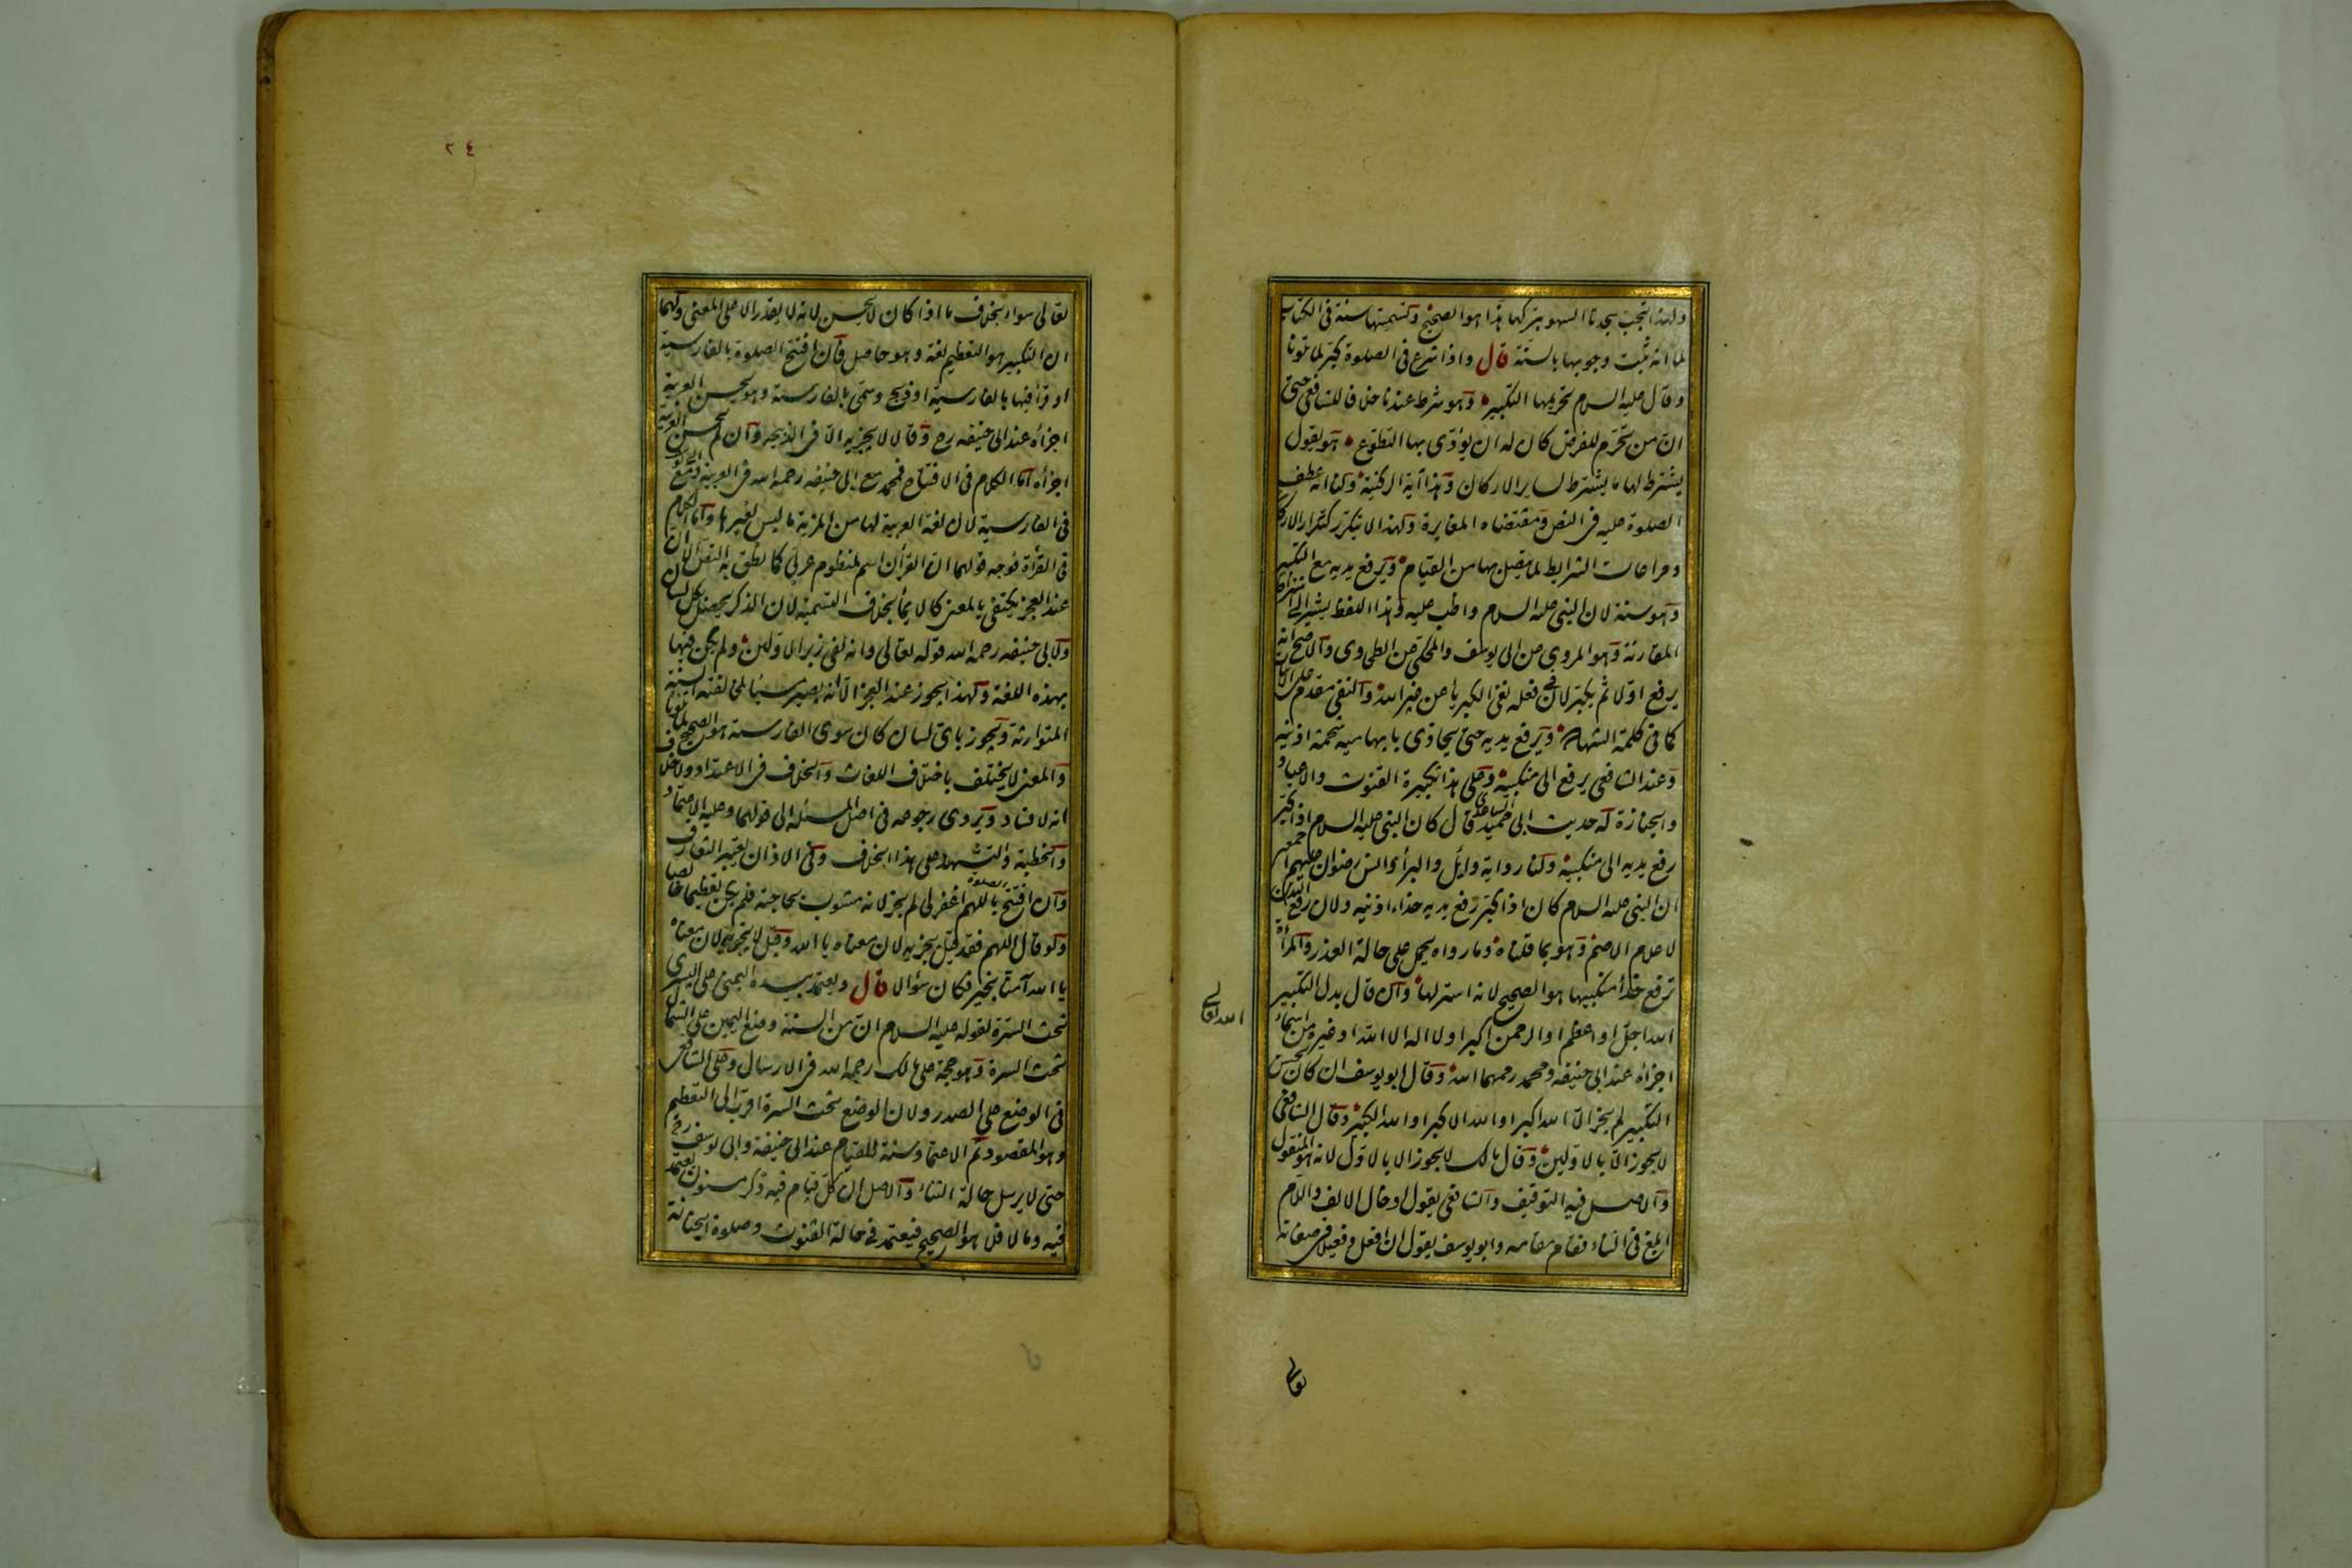 ولهذا تجب سجدتا السهو بتركها هذا هو الصحيح وتسميتها سنة فى الكتاب
لما انه ثبت وجوبها بالسنة قال واذا شرع فى الصلوة كبر لما تلونا
وقال عليه السلام تحريمها التكبير وهو شرط عندنا خلافا للشافعى حتى
ان من تحرم للفرض كان له ان يؤدى بها التطوع هو يقول
يشترط لها ما يشترط لساير الاركان وهذا آية الركنية ولنا انه عطف
الصلوة عليه فى النص ومقتضاه المغايرة ولهذا لا يتكرر كتكرار الاركان
ومراعات الشرايط لما يتصل بها من القيام ويرفع يديه مع التكبير
وهو سنة لان النبى عليه السلام واظب عليه وهذا اللفظ يشير الى اشتراط
المقارنة وهو المروى عن ابى يوسف والمحكى عن الطحاوى والاصح انه
يرفع اولا ثم يكبر لان فى فعله نفى الكبرياء عن غير الله والنفى مقدم على الاثبات
كما فى كلمة الشهادة ويرفع يديه حتى يحاذى بابهاميه شحمة اذنيه
وعند الشافعى يرفع الى منكبيه وعلى هذا تكبيرة القنوت والاعياد
والجنازة له حديث ابى حميد الساعدى قال كان النبى عليه السلام اذا كبر
رفع يديه الى منكبيه ولنا رواية وايل والبراء وانس رضوان الله عليهم اجمعين
ان النبى عليه السلام كان اذا كبر رفع يديه حذاء اذنيه ولان رفع اليدين
لاعلام الاصم وهو بما قلناه وما رواه يحمل على حالة العذر والمرأة
ترفع حذاء منكبيها هو الصحيح لانه استر لها وان قال بدل التكبير
الله اجل او اعظم او الرحمن اكبر او لا اله الا الله او غيره من اسماء
الله تعالى
اجزاه عند ابى حنيفة ومحمد رحمهما الله وقال ابو يوسف ان كان يحسن
التكبير لم يجز الا الله اكبر او الله الاكبر او الله الكبير وقال الشافعى
لا يجوز الا بالاولين وقال مالك لا يجوز الا بالاول لانه هو المنقول
والاصل فيه التوقيف والشافعى يقول ادخال الالف واللام
ابلغ فى الثناء فقام مقامه وابو يوسف يقول ان افعل وفعيلا فى صفاته
تعالى
٢٤
تعالى سواء بخلاف ما اذا كان لا يحسن لانه لا يقدر الا على المعنى ولهما
ان التكبير هو التعظيم لغة وهو حاصل فان افتتح الصلوة بالفارسية
او قرأ فيها بالفارسية او ذبح وسمى بالفارسية وهو يحسن العربية
اجزأه عند ابى حنيفه رح وقالا لا يجزيه الا فى الذبيحه وان لم يحسن العربية
اجزأه اما الكلام فى الافتتاح فمحمد مع ابى حنيفه رحمه الله فى العربية ومع ابى يوسف
فى الفارسية لان لغة العربية لها من المزية ما ليس لغيرها واما الكلام
فى القرأة فوجه قولهما ان القرأن اسم لمنظوم عربى كما نطق به النص الا ان
عند العجز يكتفى بالمعنى كالايماء بخلاف التسمية لان الذكر يحصل بكل لسان
ولابى حنيفه رحمه الله قوله تعالى وانه لفى زبر الاولين ولم يكن فيها
بهذه اللغة ولهذا يجوز عند العجز الا انه يصير مسيئا لمخالفته السنة
المتوارثة ويجوز باى لسان كان سوى الفارسية هو الصحيح لما تلونا
والمعنى لا يختلف باختلاف اللغات والخلاف فى الاعتداد ولا خلاف
انه لا فساد ويروى رجوعه فى اصل المسئلة الى قولهما وعليه الاعتماد
والخطبة والتشهد على هذا الخلاف وفى الاذان يعتبر التعارف
وان افتتح الصلوة باللهم اغفر لى لم يجز لانه مشوب بحاجته فلم يكن تعظيما خالصا
ولو قال اللهم فقد قيل يجزيه لان معناه يا الله وقيل لا يجزيه لان معناه
يا الله آمنا بخير فكان سؤالا قال ويعتمد بيده اليمنى على اليسرى
تحت السرة لقوله عليه السلام ان من السنة وضع اليمين على الشمال
تحت السرة وهو حجة على مالك رحمه الله فى الارسال وعلى الشافعى
فى الوضع على الصدر ولان الوضع تحت السرة اقرب الى التعظيم
وهو المقصود ثم الاعتماد سنة للقيام عند ابى حنيفة وابى يوسف رح
حتى لا يرسل حالة الثناء والاصل ان كل قيام فيه ذكر مسنون يعتمد
فيه وما لا فلا هو الصحيح فيعتمد فى حالة القنوت وصلوة الجنازة